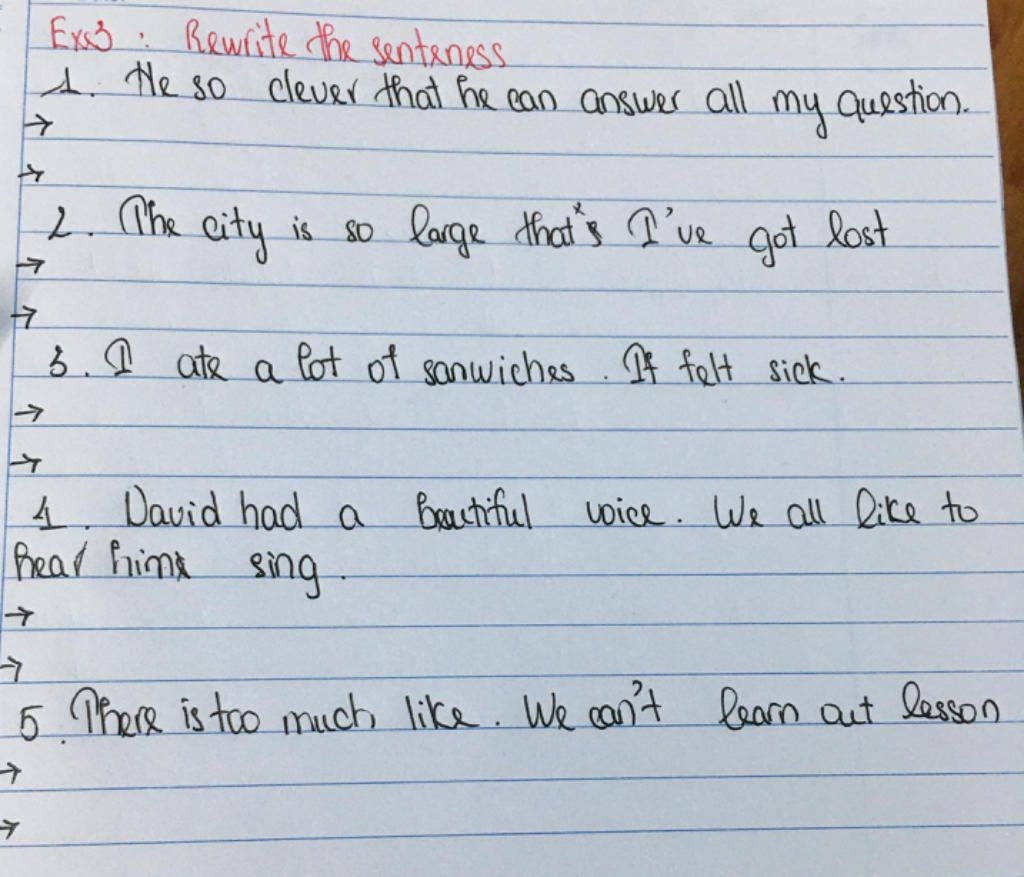 Exs3 : Rewrite the senteness
1. He so clever that he can answer all my question.
→
→
2. The city is so large that's I've got lost
→
→
3. I ate a lot of sanwiches. If felt sick.
→
→
4. David had a beautiful voice. We all like to
hear him sing.
→
→
5. There is too much like. We can't learn out lesson
→
→